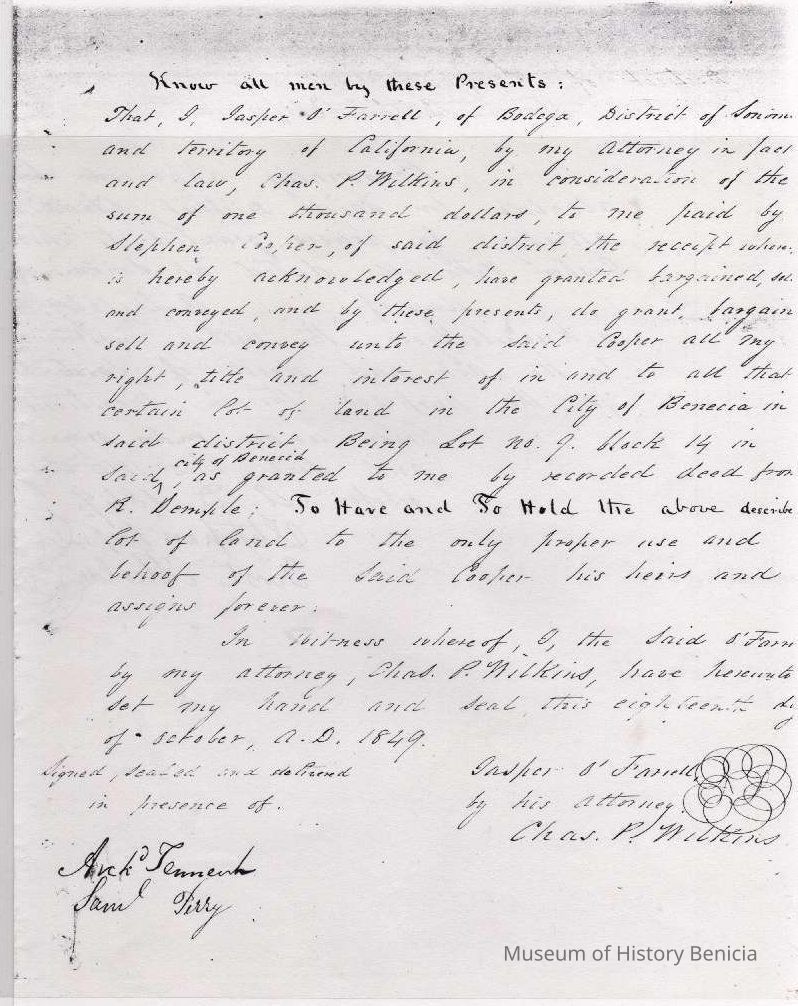 Know all men by these Presents:
That, I, Jasper O'Farrell, of Bodega, District of Sonom
and territory of California, by my Attorney in fact
and law, Chas. P. Wilkins, in consideration of the
sum of one thousand dollars, to me paid by
Stephen Cooper, of said district the receipt where
is hereby acknowledged, have granted bargained, sol
and conveyed, and by these presents, do grant, bargain
sell and convey unto the said Cooper all my
right, title and interest of in and to all that
certain lot of land in the City of Benecia in
said district Being Lot no. 9. block 14 in
city of Benecia
said, as granted to me by recorded deed from
R. Semple: To Have and To Hold the above describe
lot of land to the only proper use and
behoof of the said Cooper his heirs and
assigns forever:
In witness whereof, I, the said O'Farr
by my attorney, Chas. P. Wilkins, have hereunto
set my hand and seal, this eighteenth d
of october, A.D. 1849.
Signed, sealed and delivered
in presence of.
Jasper O'Farrell
by his attorney.
Chas. P. Wilkins
Archd Tennent
Saml Perry
Museum of History Benicia